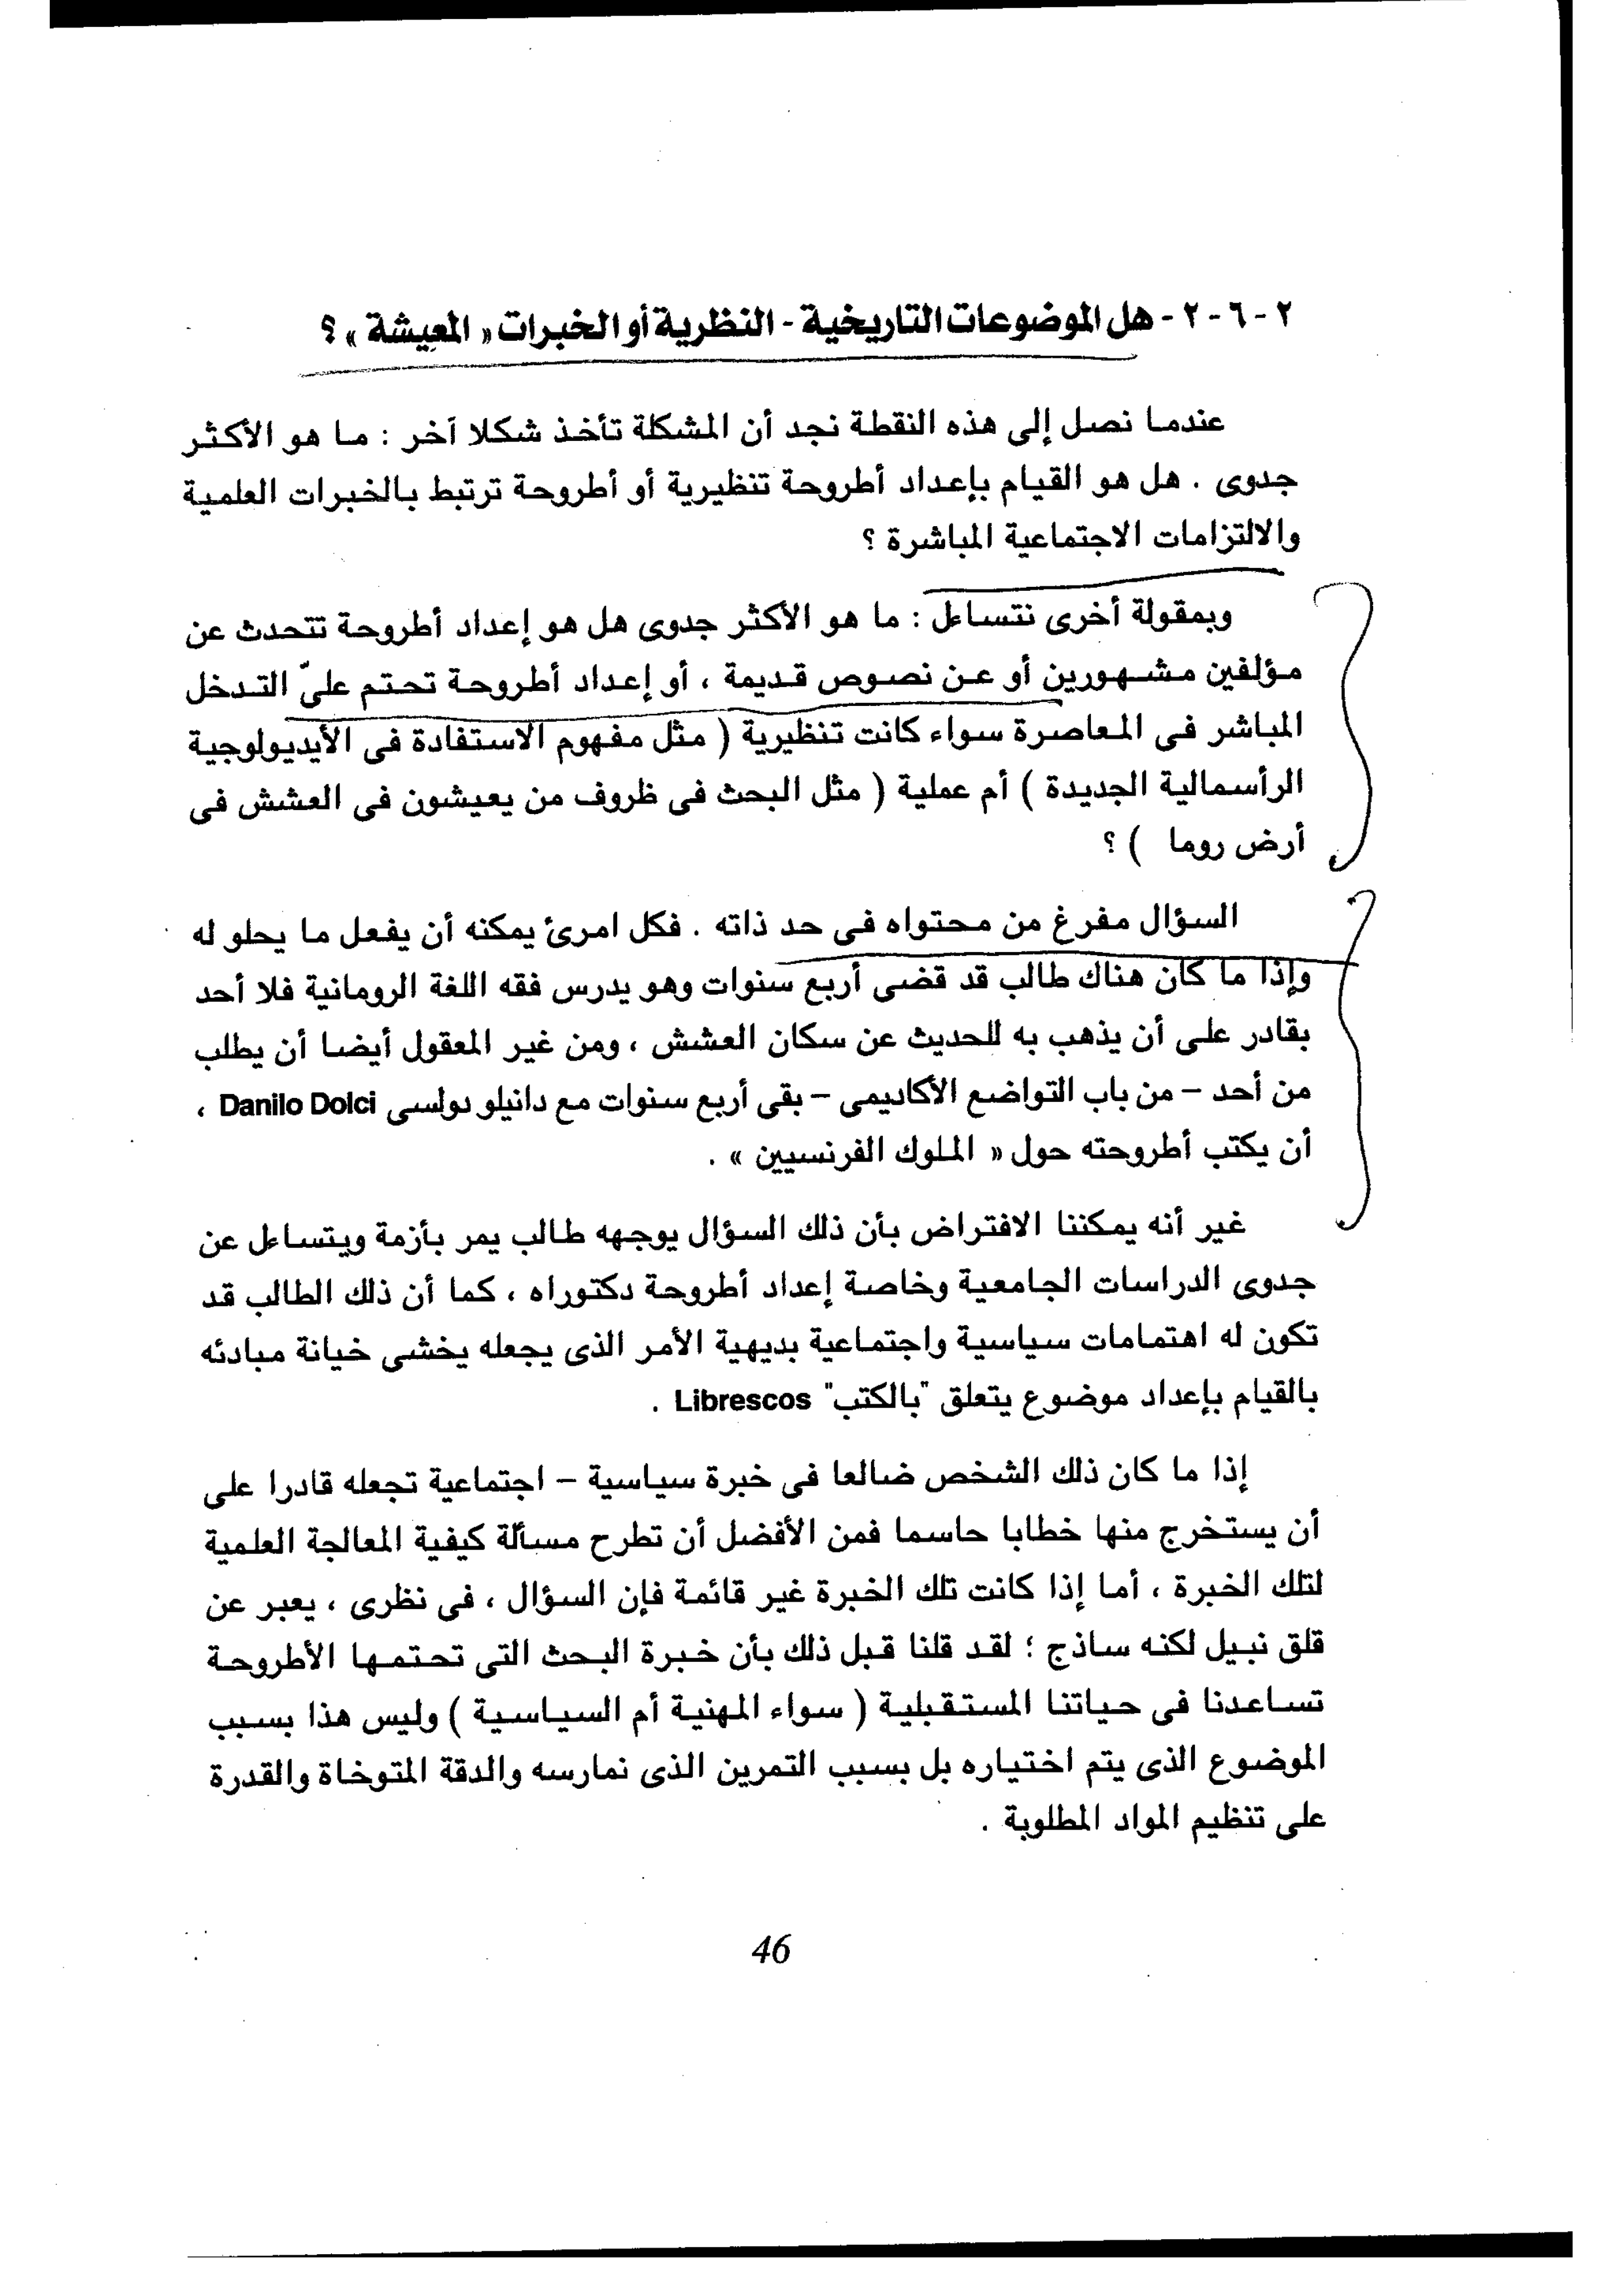 ٢ - ٦ - ٢ - هل الموضوعات التاريخية - النظرية أو الخبرات « المعيشة » ؟
عندما نصل إلى هذه النقطة نجد أن المشكلة تأخذ شكلا آخر : ما هو الأكثر
جدوى . هل هو القيام بإعداد أطروحة تنظيرية أو أطروحة ترتبط بالخبرات العلمية
والالتزامات الاجتماعية المباشرة ؟
وبمقولة أخرى نتساءل : ما هو الأكثر جدوى هل هو إعداد أطروحة تتحدث عن
مؤلفين مشهورين أو عن نصوص قديمة ، أو إعداد أطروحة تحتم علىّ التدخل
المباشر فى المعاصرة سواء كانت تنظيرية ( مثل مفهوم الاستفادة فى الأيديولوجية
الرأسمالية الجديدة ) أم عملية ( مثل البحث فى ظروف من يعيشون فى العشش فى
أرض روما ) ؟
السؤال مفرغ من محتواه فى حد ذاته . فكل امرئ يمكنه أن يفعل ما يحلو له
وإذا ما كان هناك طالب قد قضى أربع سنوات وهو يدرس فقه اللغة الرومانية فلا أحد
بقادر على أن يذهب به للحديث عن سكان العشش ، ومن غير المعقول أيضا أن يطلب
من أحد – من باب التواضع الأكاديمى – بقى أربع سنوات مع دانيلو دولسى Danilo Dolci ،
أن يكتب أطروحته حول « الملوك الفرنسيين » .
غير أنه يمكننا الافتراض بأن ذلك السؤال يوجهه طالب يمر بأزمة ويتساءل عن
جدوى الدراسات الجامعية وخاصة إعداد أطروحة دكتوراه ، كما أن ذلك الطالب قد
تكون له اهتمامات سياسية واجتماعية بديهية الأمر الذى يجعله يخشى خيانة مبادئه
بالقيام بإعداد موضوع يتعلق "بالكتب" Librescos .
إذا ما كان ذلك الشخص ضالعا فى خبرة سياسية – اجتماعية تجعله قادرا على
أن يستخرج منها خطابا حاسما فمن الأفضل أن تطرح مسألة كيفية المعالجة العلمية
لتلك الخبرة ، أما إذا كانت تلك الخبرة غير قائمة فإن السؤال ، فى نظرى ، يعبر عن
قلق نبيل لكنه ساذج ؛ لقد قلنا قبل ذلك بأن خبرة البحث التى تحتمها الأطروحة
تساعدنا فى حياتنا المستقبلية ( سواء المهنية أم السياسية ) وليس هذا بسبب
الموضوع الذى يتم اختياره بل بسبب التمرين الذى نمارسه والدقة المتوخاة والقدرة
على تنظيم المواد المطلوبة .
46